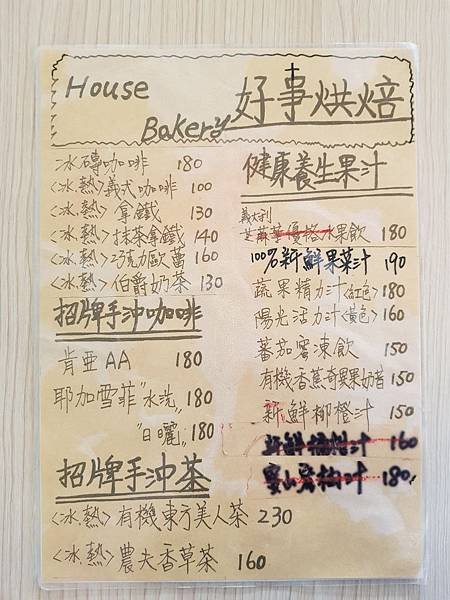 House
Bakery
好事烘焙
冰磚咖啡 180
<冰.熱>義式咖啡 100
<冰.熱>拿鐵 130
<冰.熱>抹茶拿鐵 140
<冰.熱>巧克力歐蕾 160
<冰.熱>伯爵奶茶 130
招牌手沖咖啡
肯亞AA 180
耶加雪菲"水洗" 180
"日曬" 180
招牌手沖茶
<冰.熱>有機東方美人茶 230
<冰.熱>農夫香草茶 160
健康養生果汁
義大利
水果飲 180
100%新鮮果菜汁 190
蔬果精力汁<紅色> 180
陽光活力汁<黃色> 160
蕃茄蜜凍飲 150
有機香蕉奇異果奶昔 150
新鮮柳橙汁 150
新鮮橘柑汁 160
180